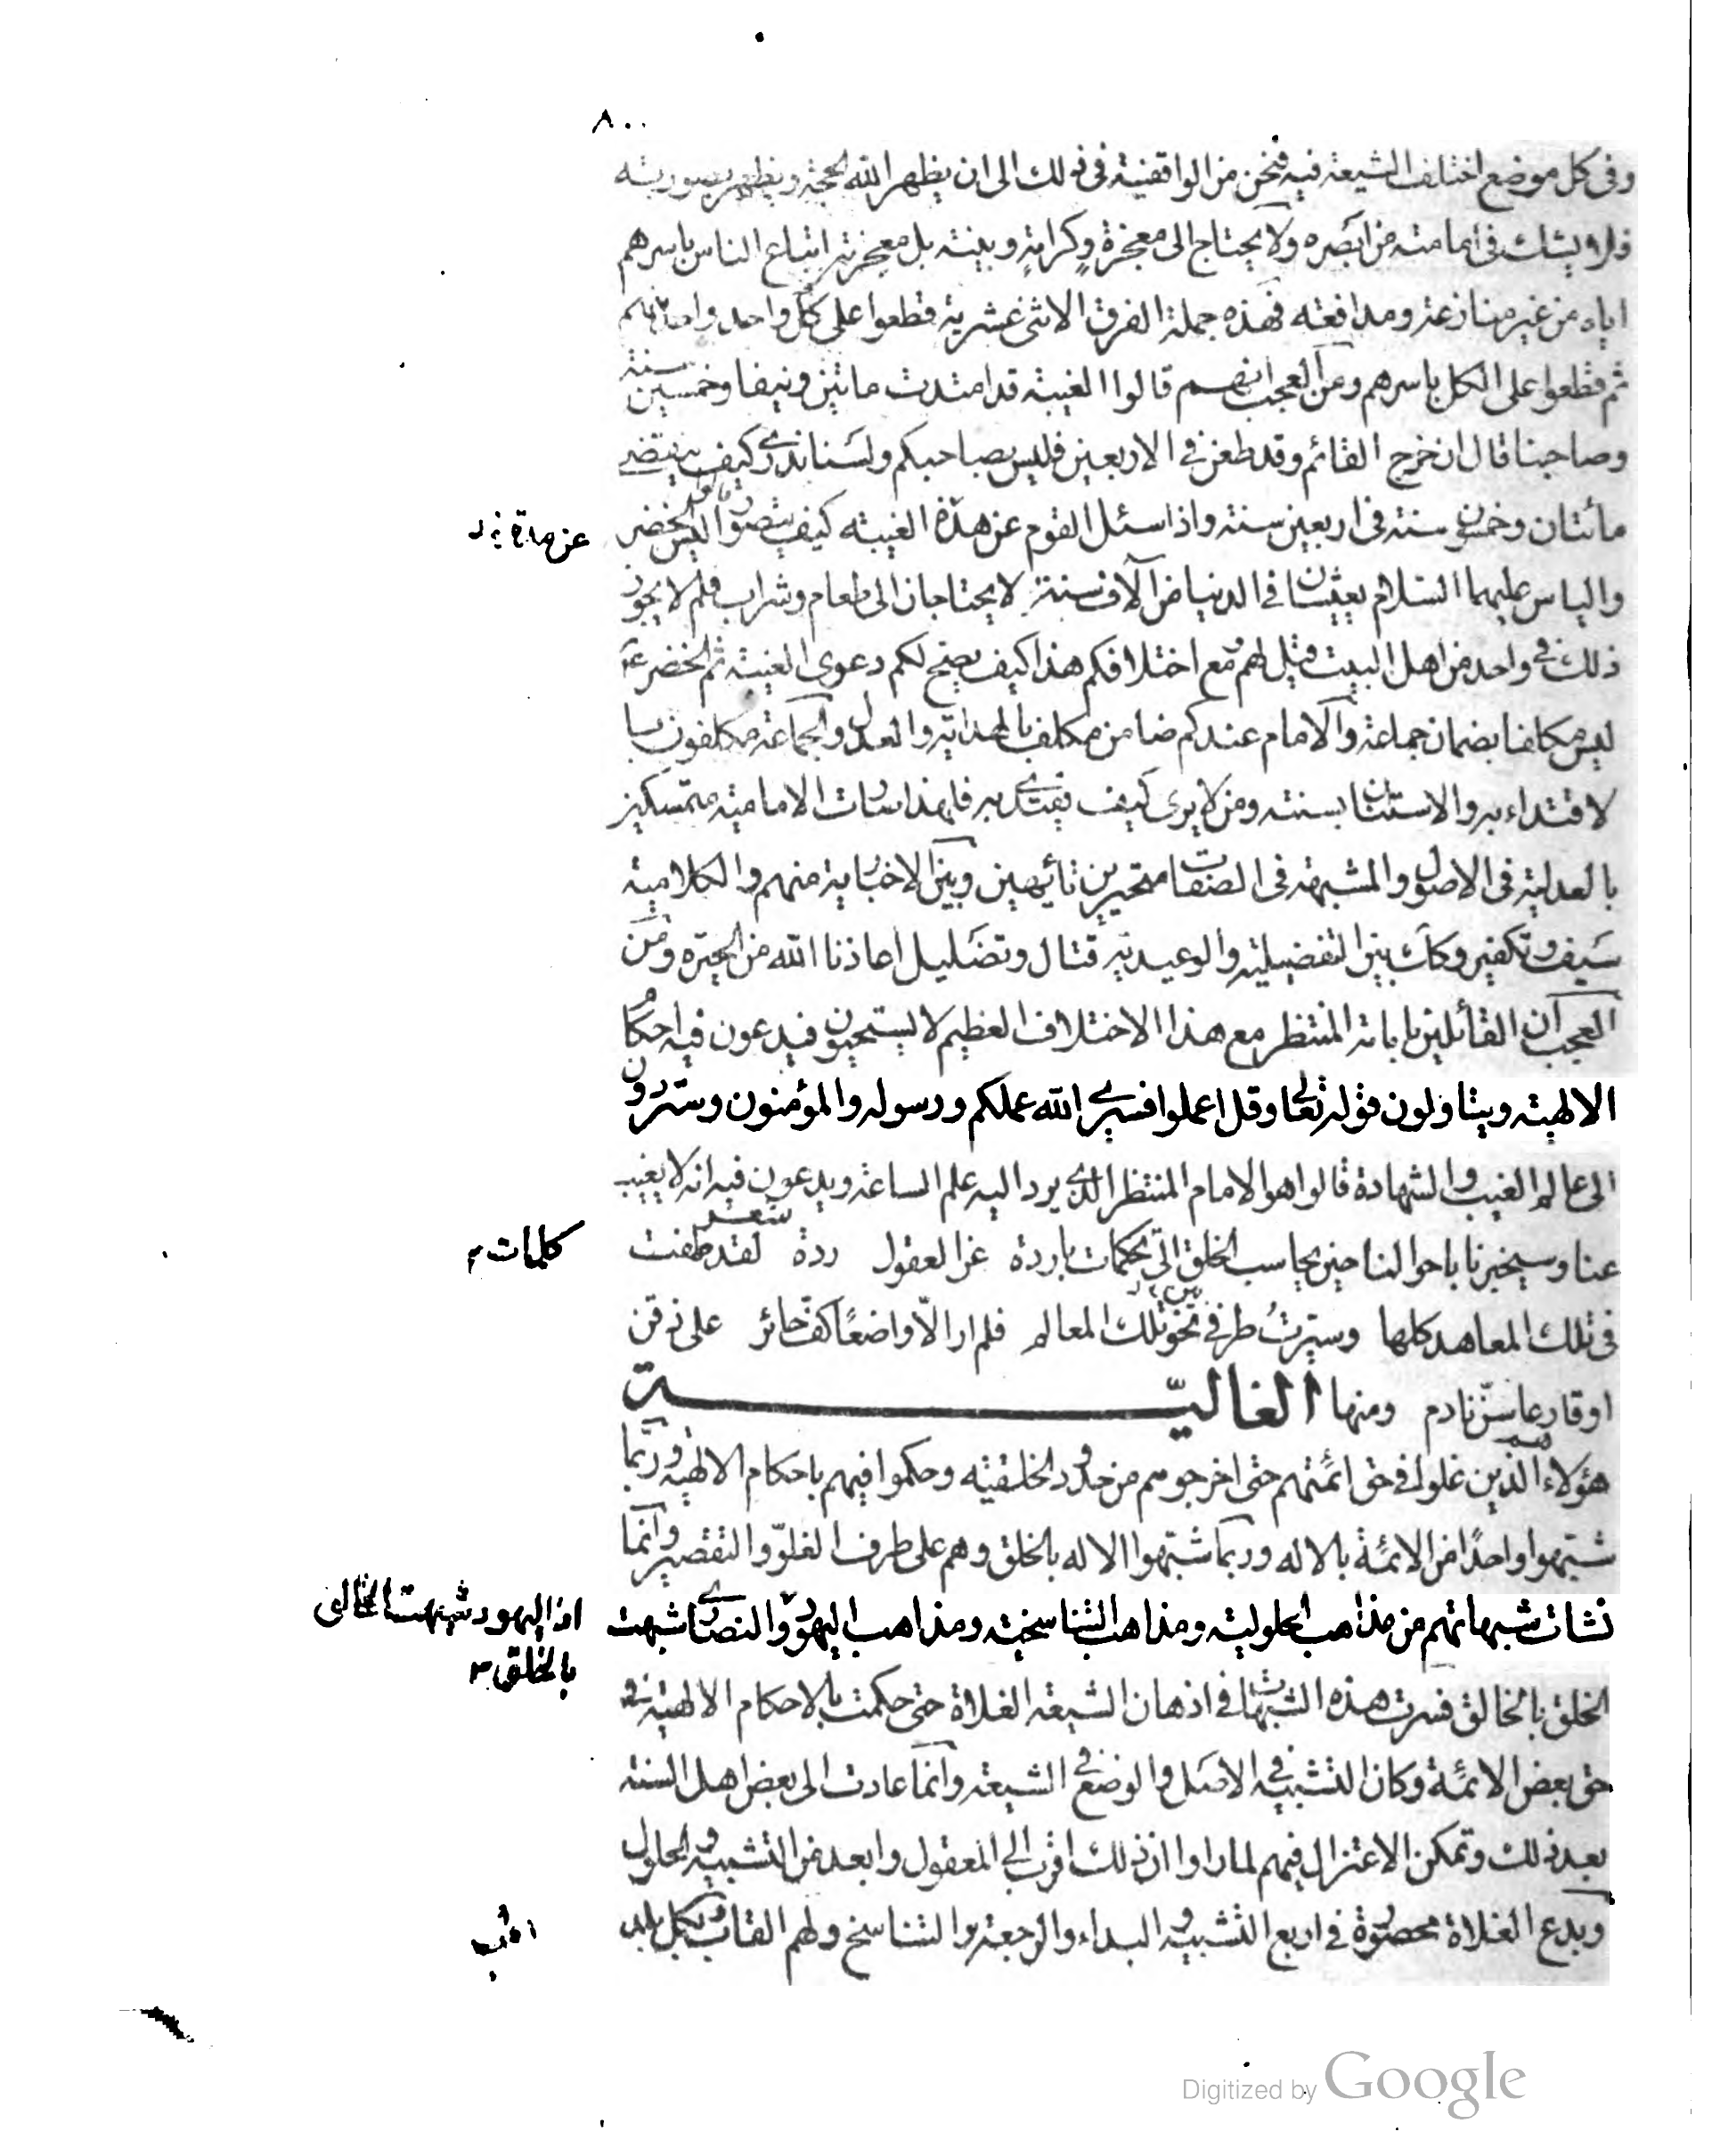 ٨٠٠
وفى كل موضع اختلف الشيعة فيه فنحن من الواقفية فى ذلك الى ان يظهر الله الحجة ويظهر بصورته
فلا يشك فى امامته من ابصره ولا يحتاج الى معجزة وكرامة وبينة بل معجزته اتباع الناس باسرهم
اياه من غير منازعة ومدافعة فهذه جملة الفرق الاثنى عشرية قطعوا على كل واحد واحد منهم
ثم قطعوا على الكل باسرهم ومن العجب انهم قالوا الغيبة قد امتدت مائتين ونيفا وخمسين سنة
وصاحبنا قال ان خرج القائم وقد طعن فى الاربعين فليس بصاحبكم ولسنا ندرى كيف ينقضى
مائتان وخمسون سنة فى اربعين سنة واذا سئل القوم عن هذه الغيبة كيف يتصور قالوا اليس الخضر
عن مدة
والياس عليهما السلام يعيشان فى الدنيا من آلاف سنة لا يحتاجان الى طعام وشراب فلم لا يجوز
ذلك فى واحد من اهل البيت قيل لهم ومع اختلافكم هذا كيف يصح لكم دعوى الغيبة ثم الخضر عم
ليس مكلفا بضمان جماعة والامام عندكم ضامن مكلف بالهداية والعدل والجماعة مكلفون با
لاقتداء به والاستنان بسنته ومن لا يرى كيف يقتدى به فلهذا صارت الامامية متمسكين
بالعدلية فى الاصول والمشبهة فى الصفات متحيرين تائهين وبين الاخبارية منهم والكلامية
سيف وتكفير وكذلك بين التفضيلية والوعيدية قتال وتضليل اعاذنا الله من الحيرة ومن
العجب ان القائلين بامامة المنتظر مع هذا الاختلاف العظيم لا يستحيون فيدعون فيه احكام
الالهية ويتاولون قوله تعالى وقل اعملوا فسيرى الله عملكم ورسوله والمؤمنون وستردون
الى عالم الغيب والشهادة قالوا هو الامام المنتظر الذى يرد اليه علم الساعة ويدعون فيه انه لا يغيب
عنا وسيخبرنا باحوالنا حين يحاسب الخلق الى تحكمات باردة عن العقول ردة شعر لقد طفت
كلمات
فى تلك المعاهد كلها وسيرت طرفى بين تلك المعالم فلم ار الا واضعا كف حائر على ذقن
او قارعا سن نادم ومنها الغالية
هؤلاء هم الذين غلوا فى حق ائمتهم حتى اخرجوهم من حدود الخلقية وحكموا فيهم باحكام الالهية وربما
شبهوا واحدا من الائمة بالاله وربما شبهوا الاله بالخلق وهم على طرف الغلو والتقصير وانما
نشات شبهاتهم من مذاهب الحلولية ومذاهب التناسخية ومذاهب اليهود والنصارى شبهت
اذ اليهود شبهت الخالق
بالخلق
الخلق بالخالق فسرت هذه الشبهات فى اذهان الشيعة الغلاة حتى حكمت بالاحكام الالهية فى
حق بعض الائمة وكان التشبيه فى الاصل والوضع فى الشيعة وانما عادت الى بعض اهل السنة
بعد ذلك وتمكن الاعتزال فيهم لما راوا ان ذلك اقرب الى المعقول وابعد من التشبيه والحلول
وبدع الغلاة محصورة فى اربع التشبيه والبداء والرجعة والتناسخ ولهم القاب بكل بلد
Digitized by Google